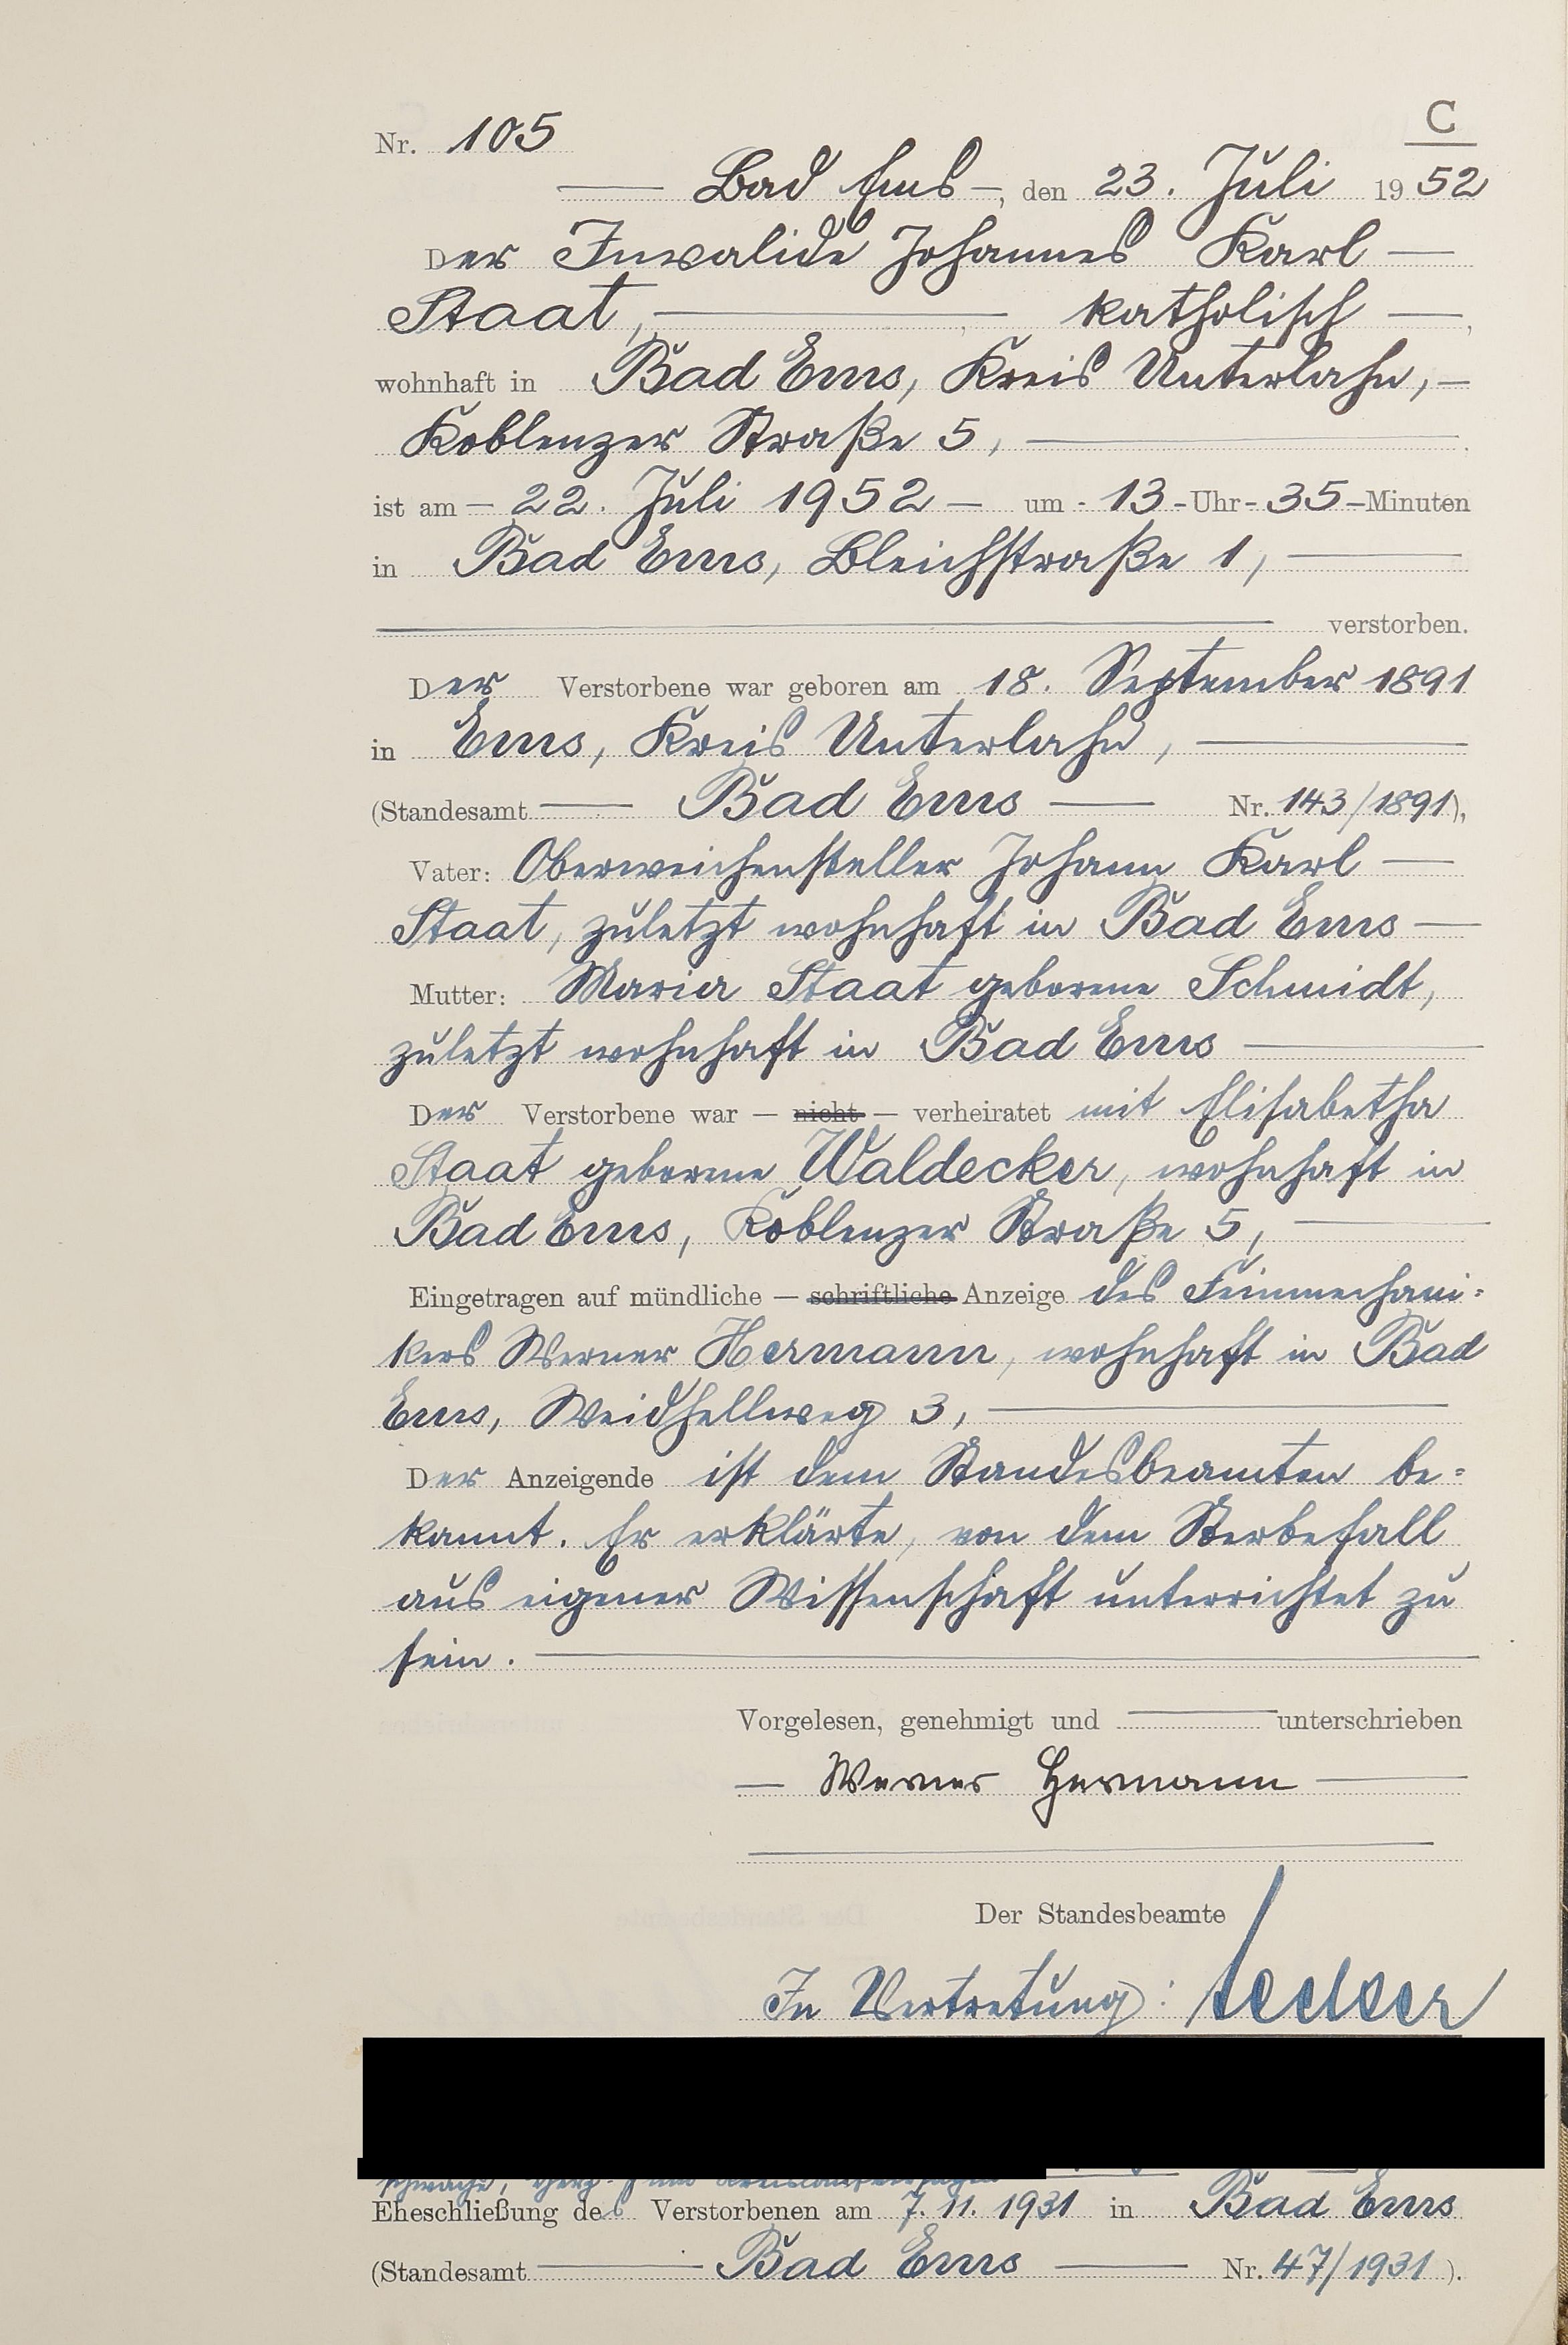 C
Nr. 105
Bad Ems, den 23. Juli 1952
Der Invalide Johannes Karl
Staat, katholisch,
wohnhaft in Bad Ems, Kreis Unterlahn,
Koblenzer Straße 5,
ist am 22. Juli 1952 um 13 Uhr 35 Minuten
in Bad Ems, Bleichstraße 1,
verstorben.
Der Verstorbene war geboren am 18. September 1891
in Ems, Kreis Unterlahn,
(Standesamt Bad Ems Nr. 143/1891),
Vater: Oberweichensteller Johann Karl
Staat, zuletzt wohnhaft in Bad Ems
Mutter: Maria Staat geborene Schmidt,
zuletzt wohnhaft in Bad Ems
Der Verstorbene war — nicht — verheiratet mit Elisabetha
Staat geborene Waldecker, wohnhaft in
Bad Ems, Koblenzer Straße 5,
Eingetragen auf mündliche — schriftliche Anzeige des Feinmechani-
kers Werner Hermann, wohnhaft in Bad
Ems, Weidhellweg 3,
Der Anzeigende ist dem Standesbeamten be-
kannt. Er erklärte, von dem Sterbefall
aus eigener Wissenschaft unterrichtet zu
sein.
Vorgelesen, genehmigt und unterschrieben
Werner Hermann
Der Standesbeamte
In Vertretung:
Eheschließung des Verstorbenen am 7. 11. 1931 in Bad Ems
(Standesamt Bad Ems Nr. 47/1931).